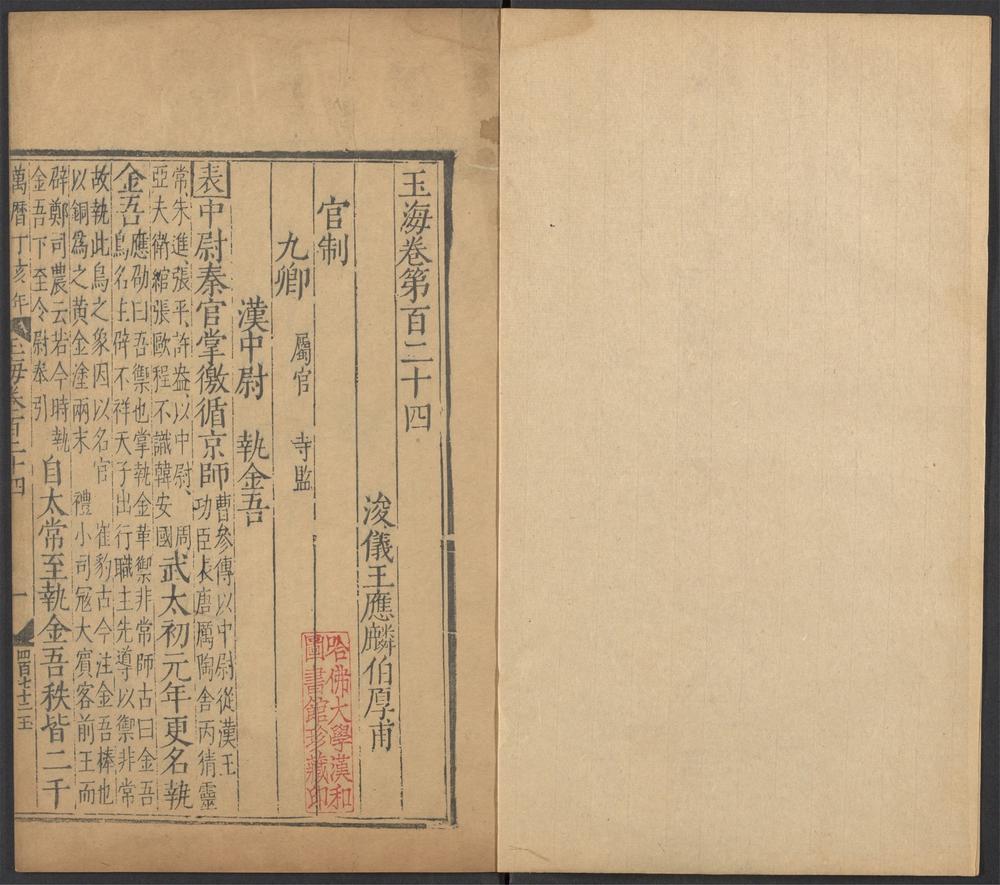 玉海卷第百二十四
浚儀王應麟伯厚甫
官制
九卿 屬官 寺監
漢中尉 執金吾
表中尉秦官掌徼循京師曹參傳以中尉從漢王
功臣表唐厲陶舍丙猜靈
常朱進張平許盎以中尉周
亞夫衛綰張歐程不識韓安國武太初元年更名執
金吾應劭曰吾禦也掌執金革禦非常師古曰金吾
鳥名主辟不祥天子出行職主先導以禦非常
故執此鳥之象因以名官 崔豹古今注金吾棒也
以銅為之黃金塗兩末 禮小司冦大賓客前王而
辟鄭司農云若今時執
金吾下至令尉奉引自太常至執金吾秩皆二千
萬曆丁亥年 玉海卷百二十四 一 四百七十二 玉
哈佛大學漢和
圖書館珍藏印